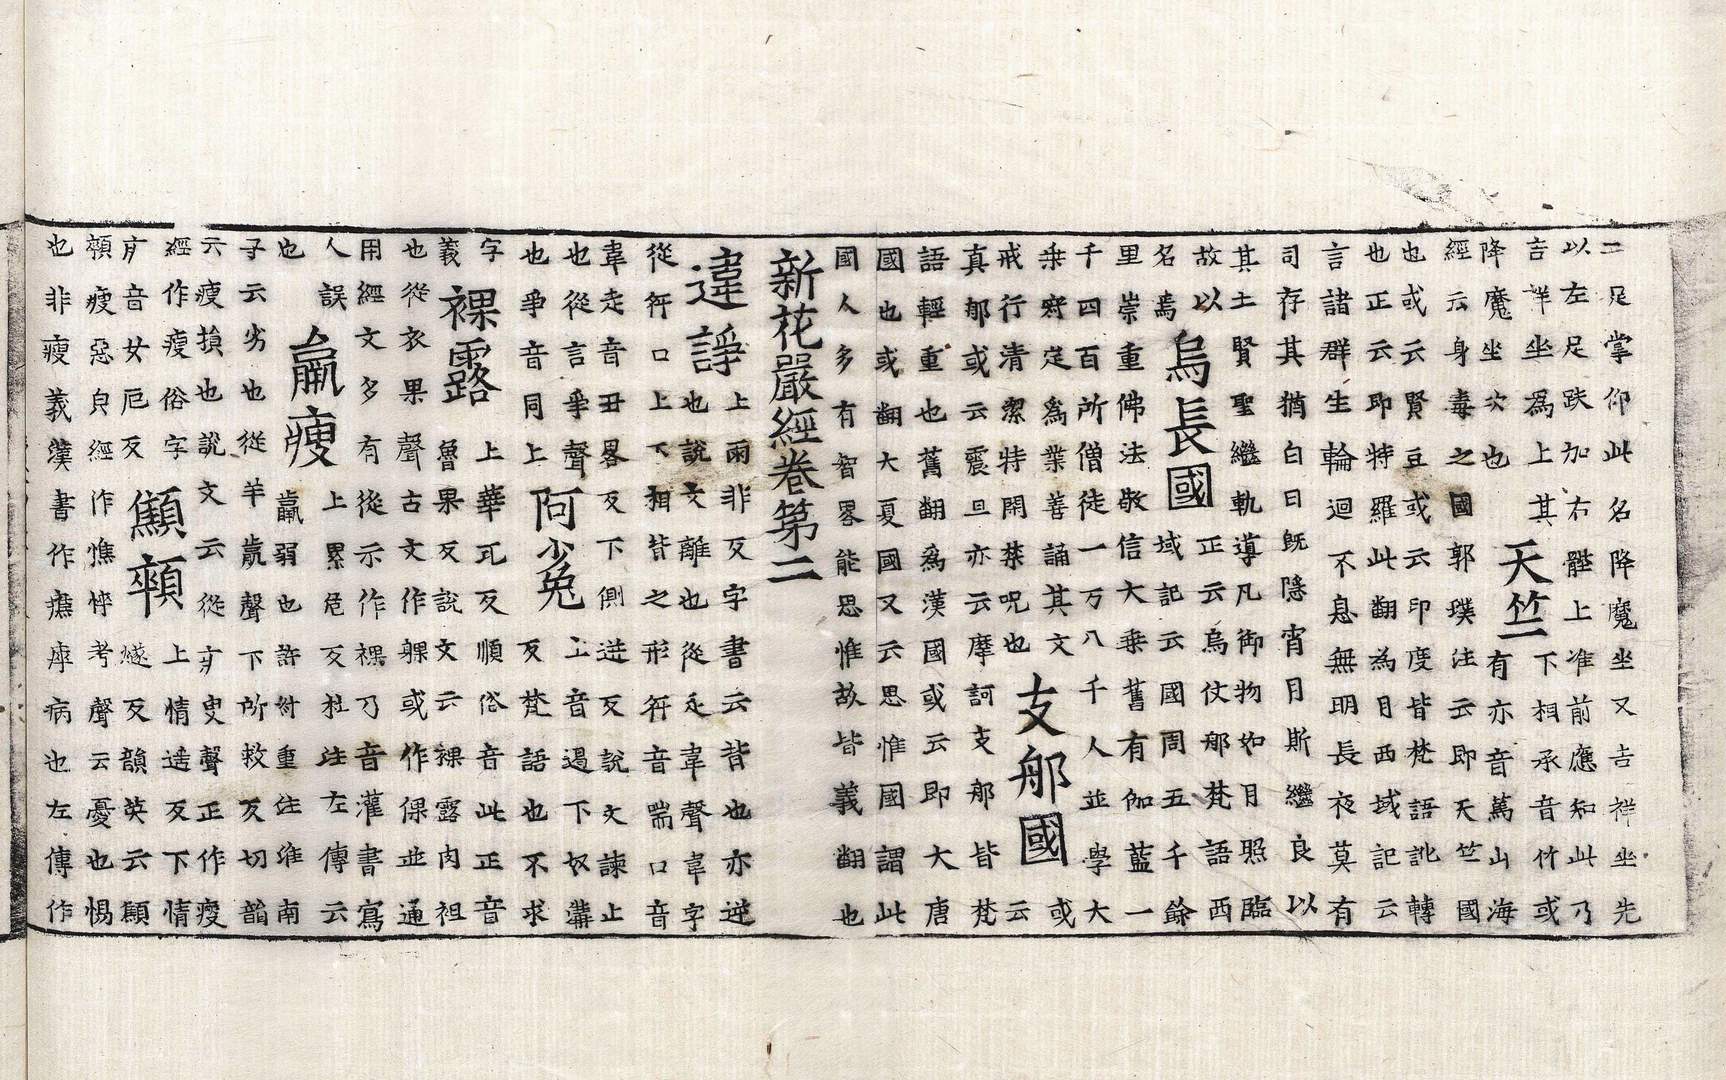 二足掌仰此名降魔坐又吉祥坐先
以左足趺加右䏶上准前應知此乃
吉祥坐爲上其
降魔坐次也
天竺
下相承音竹或
有亦音篤山海
經云身毒之國郭璞注云即天竺國
也或云賢豆或云印度皆梵語訛轉
也正云即特羅此翻為月西域記云
言諸群生輪迴不息無明長夜莫有
司存其猶白日旣隱宵月斯繼良以
其土賢聖繼軌導凡御物如月照臨
故以
名焉
烏長國
正云烏仗那梵語西
域記云國周五千餘
里崇重佛法敬信大乘舊有伽藍一
千四百所僧徒一万八千人並學大
乘寂定爲業善誦其文
戒行清潔特閑禁呪也
支那國
或
云
真那或云震旦亦云摩訶支那皆梵
語輕重也舊翻爲漢國或云即大唐
國也或翻大夏國又云思惟國謂此
國人多有智畧能思惟故皆義翻也
新花嚴經卷第二
違諍
上雨非反字書云背也亦逆
也說文離也從辵韋聲韋字
從舛口上下相背之形舛音喘口音
韋走音丑畧反下側迸反說文諫止
也從言爭聲
也爭音同上
阿㝹
上音遏下奴溝
反梵語也不求
字
義
裸露
上華瓦反順俗音此正音
魯果反說文云裸露肉袒
也從衣果聲古文作躶或作倮並通
用經文多有從示作祼乃音灌書寫
人誤
也
羸瘦
上累危反杜注左傳云
羸弱也許叔重注淮南
子云劣也從羊𣎆聲下所救反切韻
云瘦損也說文云從疒叟聲正作瘦
經作瘦俗字
疒音女厄反
顦顇
上情遥反下情
遂反韻英云顦
顇瘦惡皃經作憔悴考聲云憂也惕
也非瘦義漢書作癄瘁病也左傳作